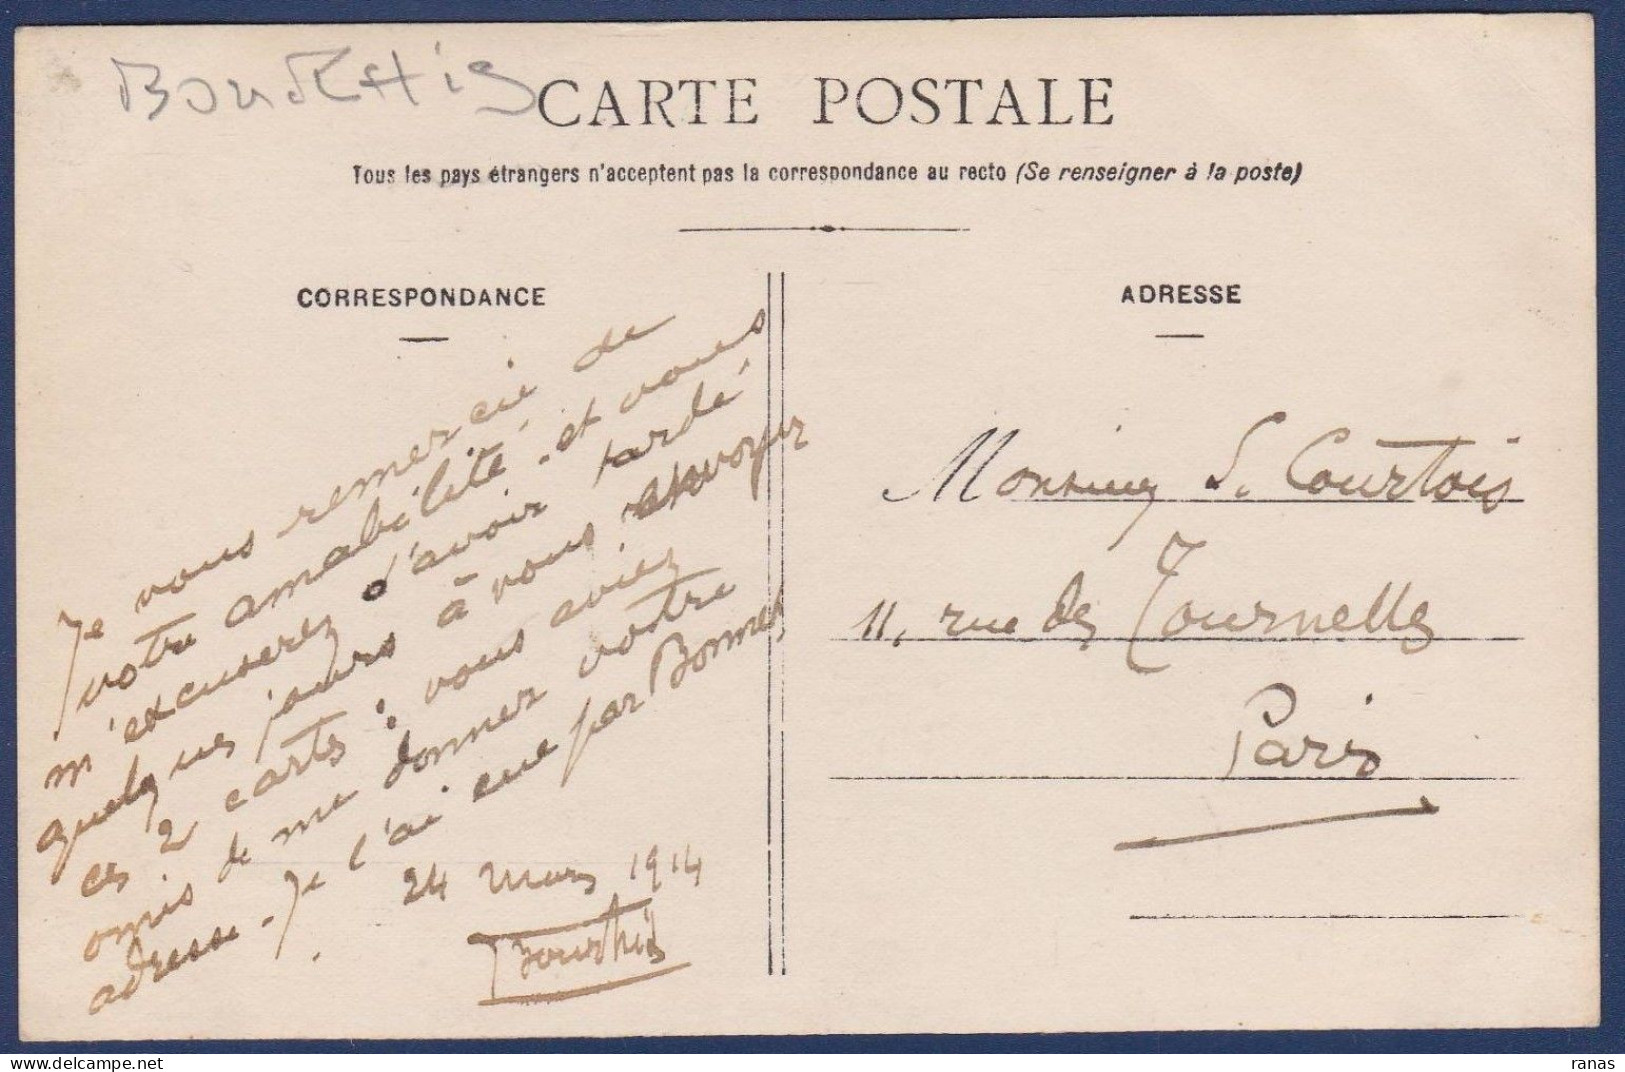 Bourthis
CARTE POSTALE
Tous les pays étrangers n'acceptent pas la correspondance au recto (Se renseigner à la poste)
CORRESPONDANCE
Je vous remercie de
votre amabilité. et vous
m'excuserez d'avoir tardé
quelques jours à vous envoyer
ces 2 carts : vous aviez
omis de me donner votre
adresse. Je l'ai eue par Bonnet
24 Mars 1914
Bourthis
ADRESSE
Monsieur S. Courtois
11, rue des Tournelles
Paris
ranas